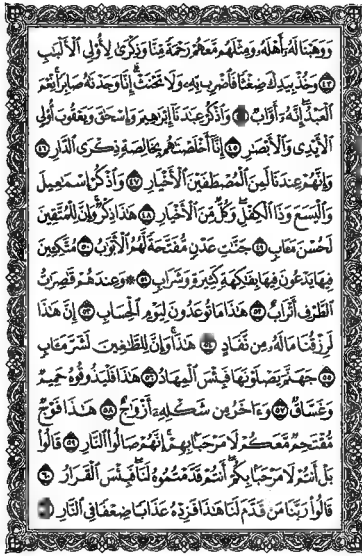 وَوَهَبْنَا لَهُۥٓ أَهْلَهُۥ وَمِثْلَهُم مَّعَهُمْ رَحْمَةً مِّنَّا وَذِكْرَىٰ لِأُو۟لِى ٱلْأَلْبَٰبِ
٤٣ وَخُذْ بِيَدِكَ ضِغْثًا فَٱضْرِب بِّهِۦ وَلَا تَحْنَثْ ۗ إِنَّا وَجَدْنَٰهُ صَابِرًا ۚ نِّعْمَ
ٱلْعَبْدُ ۖ إِنَّهُۥٓ أَوَّابٌ وَٱذْكُرْ عِبَٰدَنَآ إِبْرَٰهِيمَ وَإِسْحَٰقَ وَيَعْقُوبَ أُو۟لِى
ٱلْأَيْدِى وَٱلْأَبْصَٰرِ ٤٥ إِنَّآ أَخْلَصْنَٰهُم بِخَالِصَةٍ ذِكْرَى ٱلدَّارِ ٤٦
وَإِنَّهُمْ عِندَنَا لَمِنَ ٱلْمُصْطَفَيْنَ ٱلْأَخْيَارِ ٤٧ وَٱذْكُرْ إِسْمَٰعِيلَ
وَٱلْيَسَعَ وَذَا ٱلْكِفْلِ ۖ وَكُلٌّ مِّنَ ٱلْأَخْيَارِ ٤٨ هَٰذَا ذِكْرٌ ۚ وَإِنَّ لِلْمُتَّقِينَ
لَحُسْنَ مَـَٔابٍ ٤٩ جَنَّٰتِ عَدْنٍ مُّفَتَّحَةً لَّهُمُ ٱلْأَبْوَٰبُ ٥٠ مُتَّكِـِٔينَ
فِيهَا يَدْعُونَ فِيهَا بِفَٰكِهَةٍ كَثِيرَةٍ وَشَرَابٍ ٥١ ۞ وَعِندَهُمْ قَٰصِرَٰتُ
ٱلطَّرْفِ أَتْرَابٌ ٥٢ هَٰذَا مَا تُوعَدُونَ لِيَوْمِ ٱلْحِسَابِ ٥٣ إِنَّ هَٰذَا
لَرِزْقُنَا مَا لَهُۥ مِن نَّفَادٍ ٥٤ هَٰذَا ۚ وَإِنَّ لِلطَّٰغِينَ لَشَرَّ مَـَٔابٍ
٥٥ جَهَنَّمَ يَصْلَوْنَهَا فَبِئْسَ ٱلْمِهَادُ ٥٦ هَٰذَا فَلْيَذُوقُوهُ حَمِيمٌ
وَغَسَّاقٌ ٥٧ وَءَاخَرُ مِن شَكْلِهِۦٓ أَزْوَٰجٌ ٥٨ هَٰذَا فَوْجٌ
مُّقْتَحِمٌ مَّعَكُمْ ۖ لَا مَرْحَبًۢا بِهِمْ ۚ إِنَّهُمْ صَالُوا۟ ٱلنَّارِ ٥٩ قَالُوا۟
بَلْ أَنتُمْ لَا مَرْحَبًۢا بِكُمْ ۖ أَنتُمْ قَدَّمْتُمُوهُ لَنَا ۖ فَبِئْسَ ٱلْقَرَارُ ٦٠
قَالُوا۟ رَبَّنَا مَن قَدَّمَ لَنَا هَٰذَا فَزِدْهُ عَذَابًا ضِعْفًا فِى ٱلنَّارِ